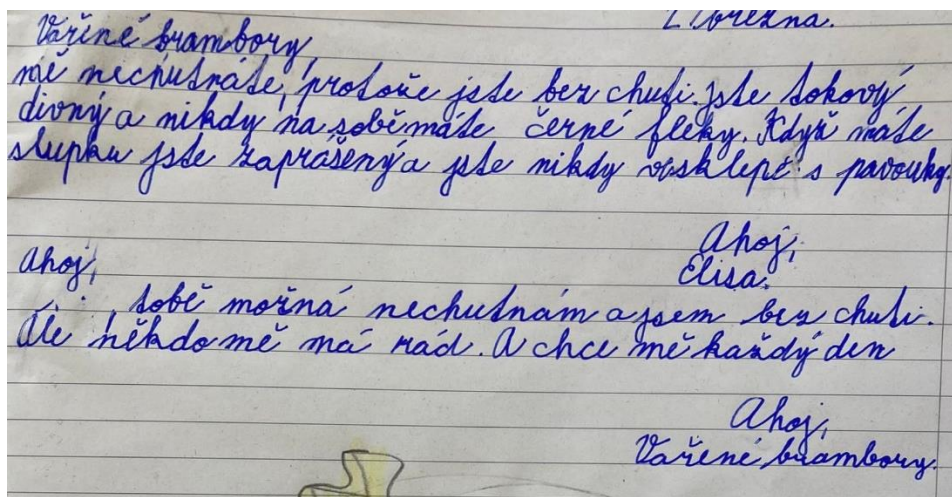 března.
Vařené brambory
mě nechutnáte, protože jste bez chuti. Jste takový
divný a nikdy na sobě máte černé fleky. Když máte
slupku jste zaprášený a jste nikdy ve sklepě s pavouky.
Ahoj,
Elisa.
Ahoj,
tobě možná nechutnám a jsem bez chuti.
Ale někdo mě má rád. A chce mě každý den
Ahoj,
Vařené brambory.